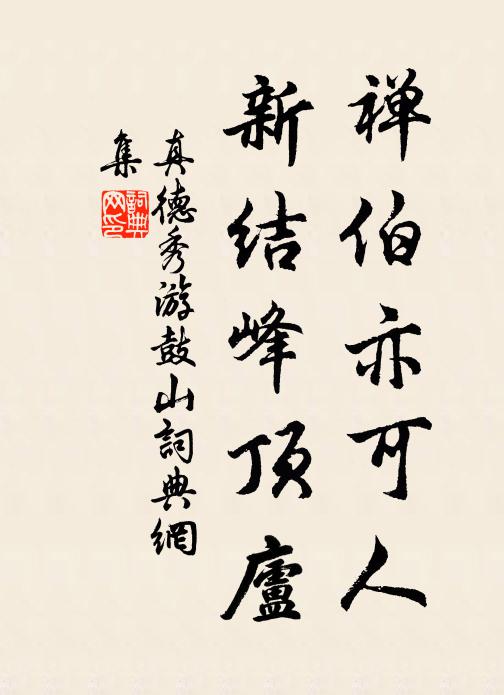 禅伯亦可人
新结峰顶廬
真德秀游鼓山詞典網
集
詞典
网印